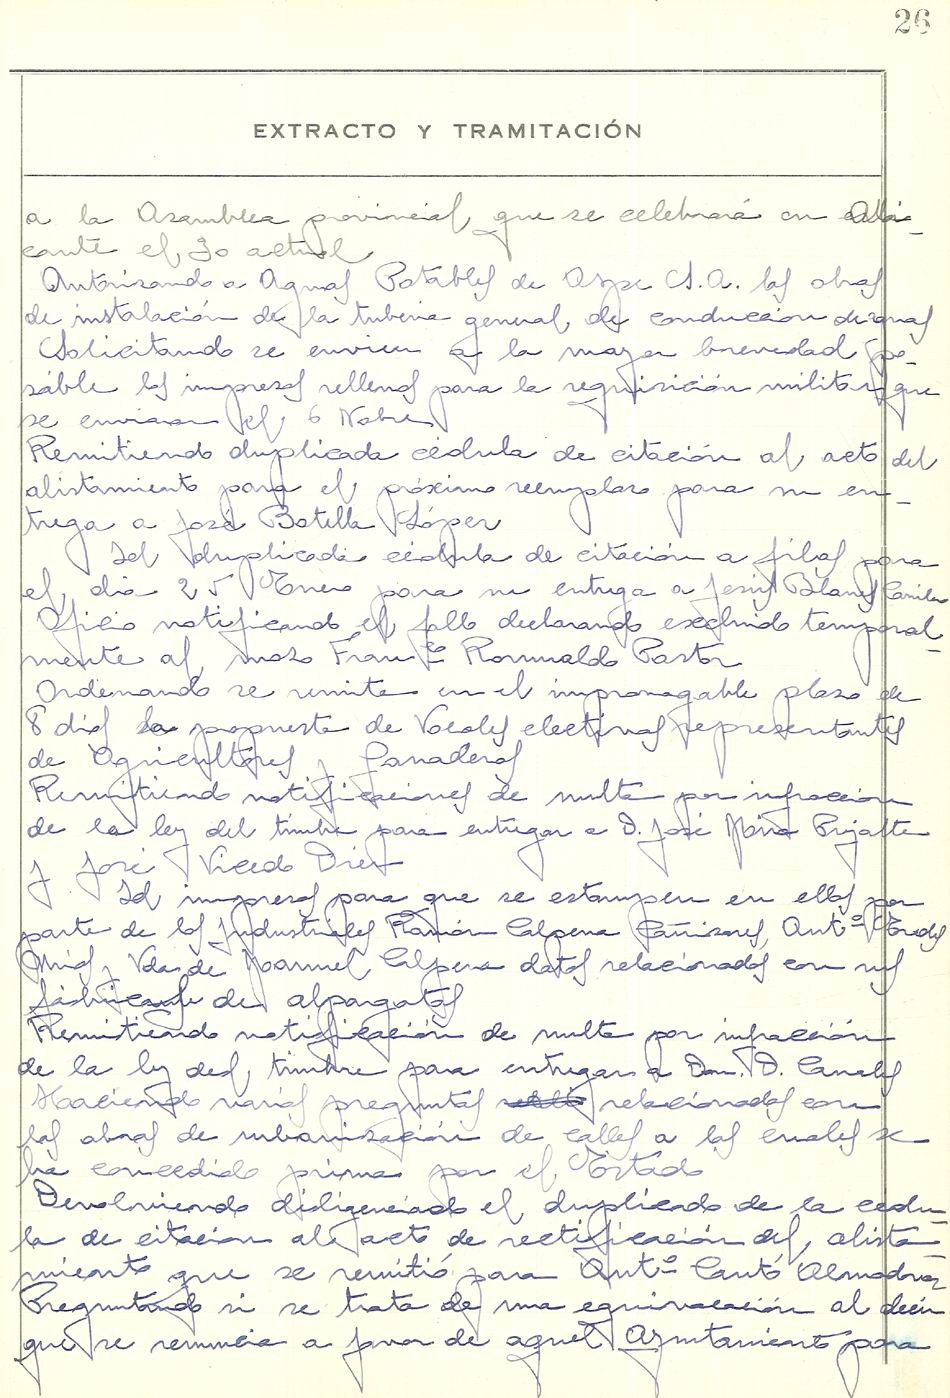 26
EXTRACTO Y TRAMITACIÓN
a la Asamblea provincial, que se celebrará en Ali-
cante el 30 actual
Autorizando a Aguas Potables de Aspe S.A. las obras
de instalación de la tuberia general, de conducción de aguas
Solicitando se envien a la mayor brevedad po-
sible los impresos rellenos para la requisición militar que
se enviaron el 6 Nobre
Remitiendo duplicada cédula de citación al acto del
alistamiento para el próximo reemplazo para su en-
trega a José Botella López
Id duplicada cédula de citación a filas para
el dia 25 Enero para su entrega a Jesús Blanes
Oficio notificando el fallo declarando excluido temporal-
mente al mozo Franco Romualdo Pastor
Ordenando se remita en el improrrogable plazo de
8 dias la propuesta de Vocales electivos representantes
de Agricultores y Ganaderos
Remitiendo notificaciones de multa por infracción
de la ley del timbre para entregar a D. José Maria
y José Vicedo Diez
Id impresos para que se estampen en ellos por
parte de los Industriales Ramón Calpena Cañizares, Antº
y Vda. de Manuel Calpena datos relacionados con sus
de alpargatas
Remitiendo notificación de multa por infracción
de la ley del timbre para entregar a D. Canales
Haciendo varias preguntas relacionadas con
las obras de urbanización de calles a las cuales se
ha concedido prima por el Estado
Devolviendo diligenciado el duplicado de la cedu-
la de citacion al acto de rectificación del alista-
miento que se remitió para Antº Cantó Almodovar
Preguntando si se trata de una equivocación al decir
que se renuncia a favor de aquel Ayuntamiento para